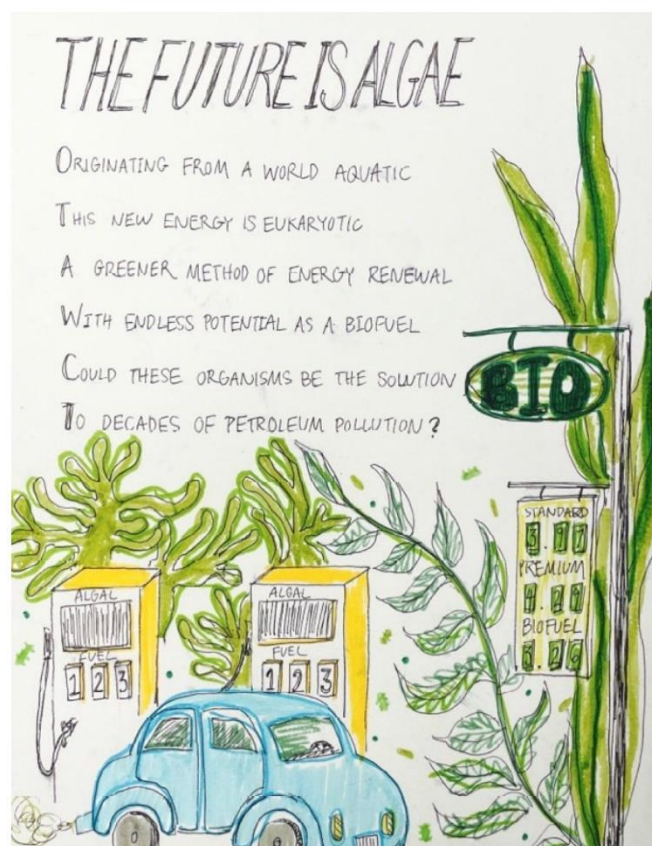 THE FUTURE IS ALGAE
ORIGINATING FROM A WORLD AQUATIC
THIS NEW ENERGY IS EUKARYOTIC
A GREENER METHOD OF ENERGY RENEWAL
WITH ENDLESS POTENTIAL AS A BIOFUEL
COULD THESE ORGANISMS BE THE SOLUTION
TO DECADES OF PETROLEUM POLLUTION?
BIO
STANDARD
PREMIUM
BIOFUEL
ALGAL
FUEL
1 2 3
ALGAL
FUEL
1 2 3